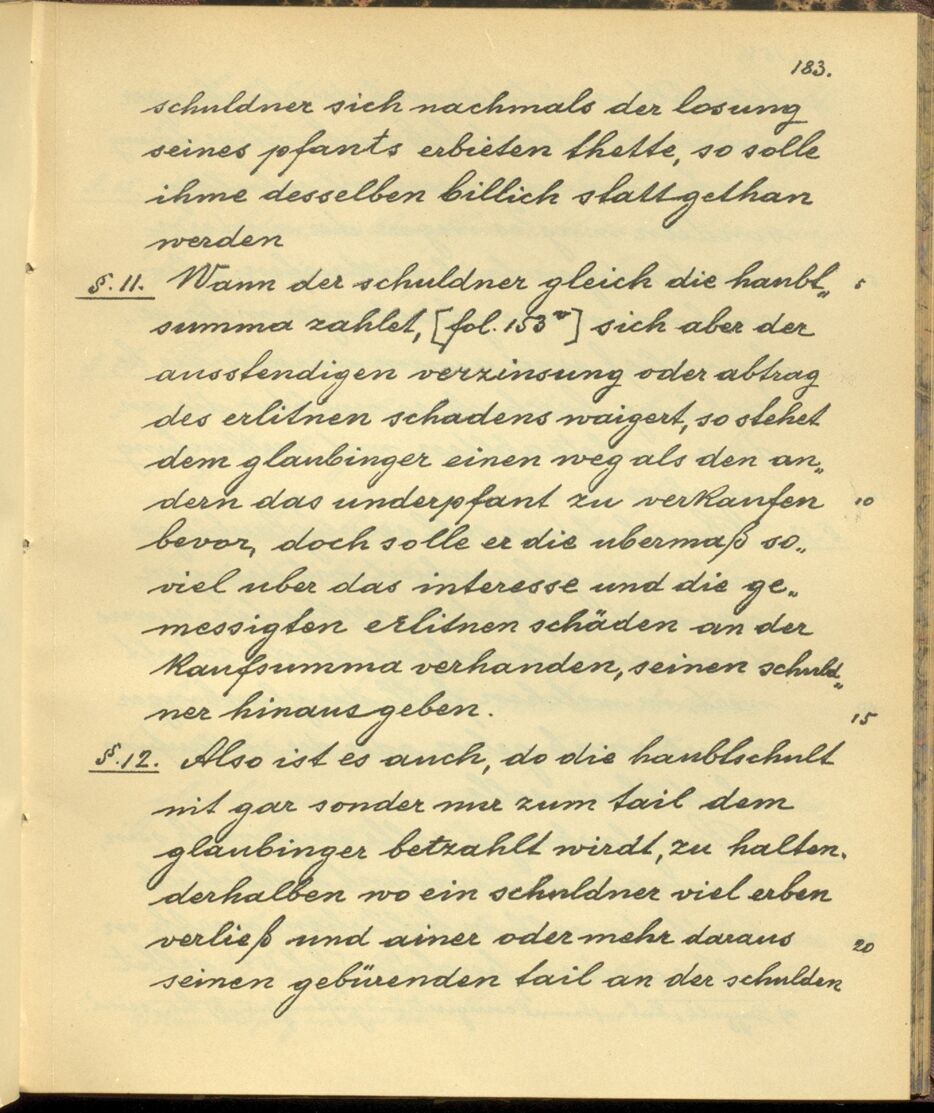 183.
schuldner sich nachmals der losung
seines pfants erbieten thette, so solle
ihme desselben billich statt gethan
werden
§. 11. Wann der schuldner gleich die haubt„ 5
summa zahlet, [fol. 153v] sich aber der
ausstendigen verzinsung oder abtrag
des erlitnen schadens waigert, so stehet
dem glaubinger einen weg als den an„
dern das underpfant zu verkaufen 10
bevor, doch solle er die ubermaß so„
viel uber das interesse und die ge„
messigten erlitnen schäden an der
kaufsumma verhanden, seinen schuld„
ner hinausgeben. 15
§. 12. Also ist es auch, do die haubtschult
nit gar sonder nur zum tail dem
glaubinger betzahlt wirdt, zu halten.
derhalben wo ein schuldner viel erben
verließ und ainer oder mehr daraus 20
seinen gebürenden tail an der schulden